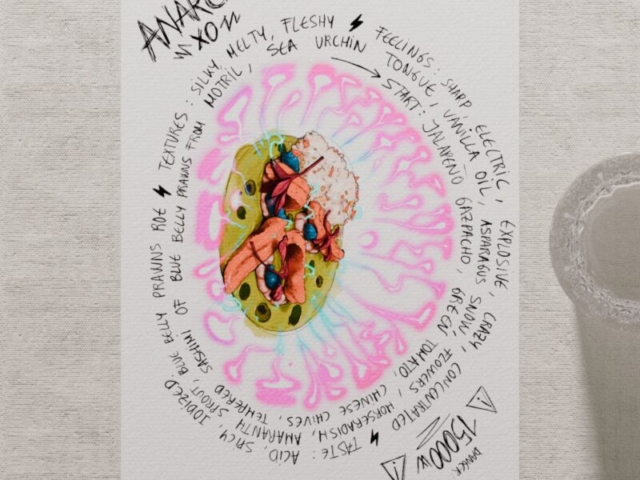 START: JALAPEÑO GAZPACHO, GREEN TOMATO, CHINESE CHIVES, TEMPERED SASHIMI OF BLUE BELLY PRAWNS FROM MOTRIL, SEA URCHIN TONGUE, VANILLA OIL, ASPARAGUS SNOW, FLOWERS, HORSERADISH, AMARANTH SPROUT, BLUE BELLY PRAWNS ROE
TEXTURES: SILKY, MELTY, FLESHY
FEELINGS: SHARP, ELECTRIC, EXPLOSIVE, CRAZY, CONCENTRATED
TASTE: ACID, SPICY, IODIZED
15000W
DANGER